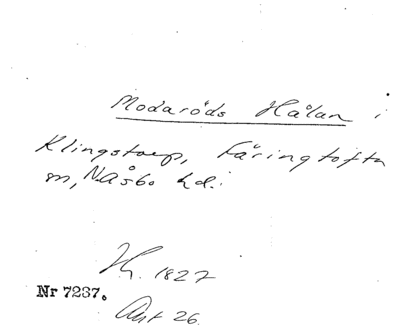 Modaröds Hålan i
Klingstorp, Färingtofta
sn, N Åsbo hd.
Hg. 1827
Nr 7237.
Avt 26